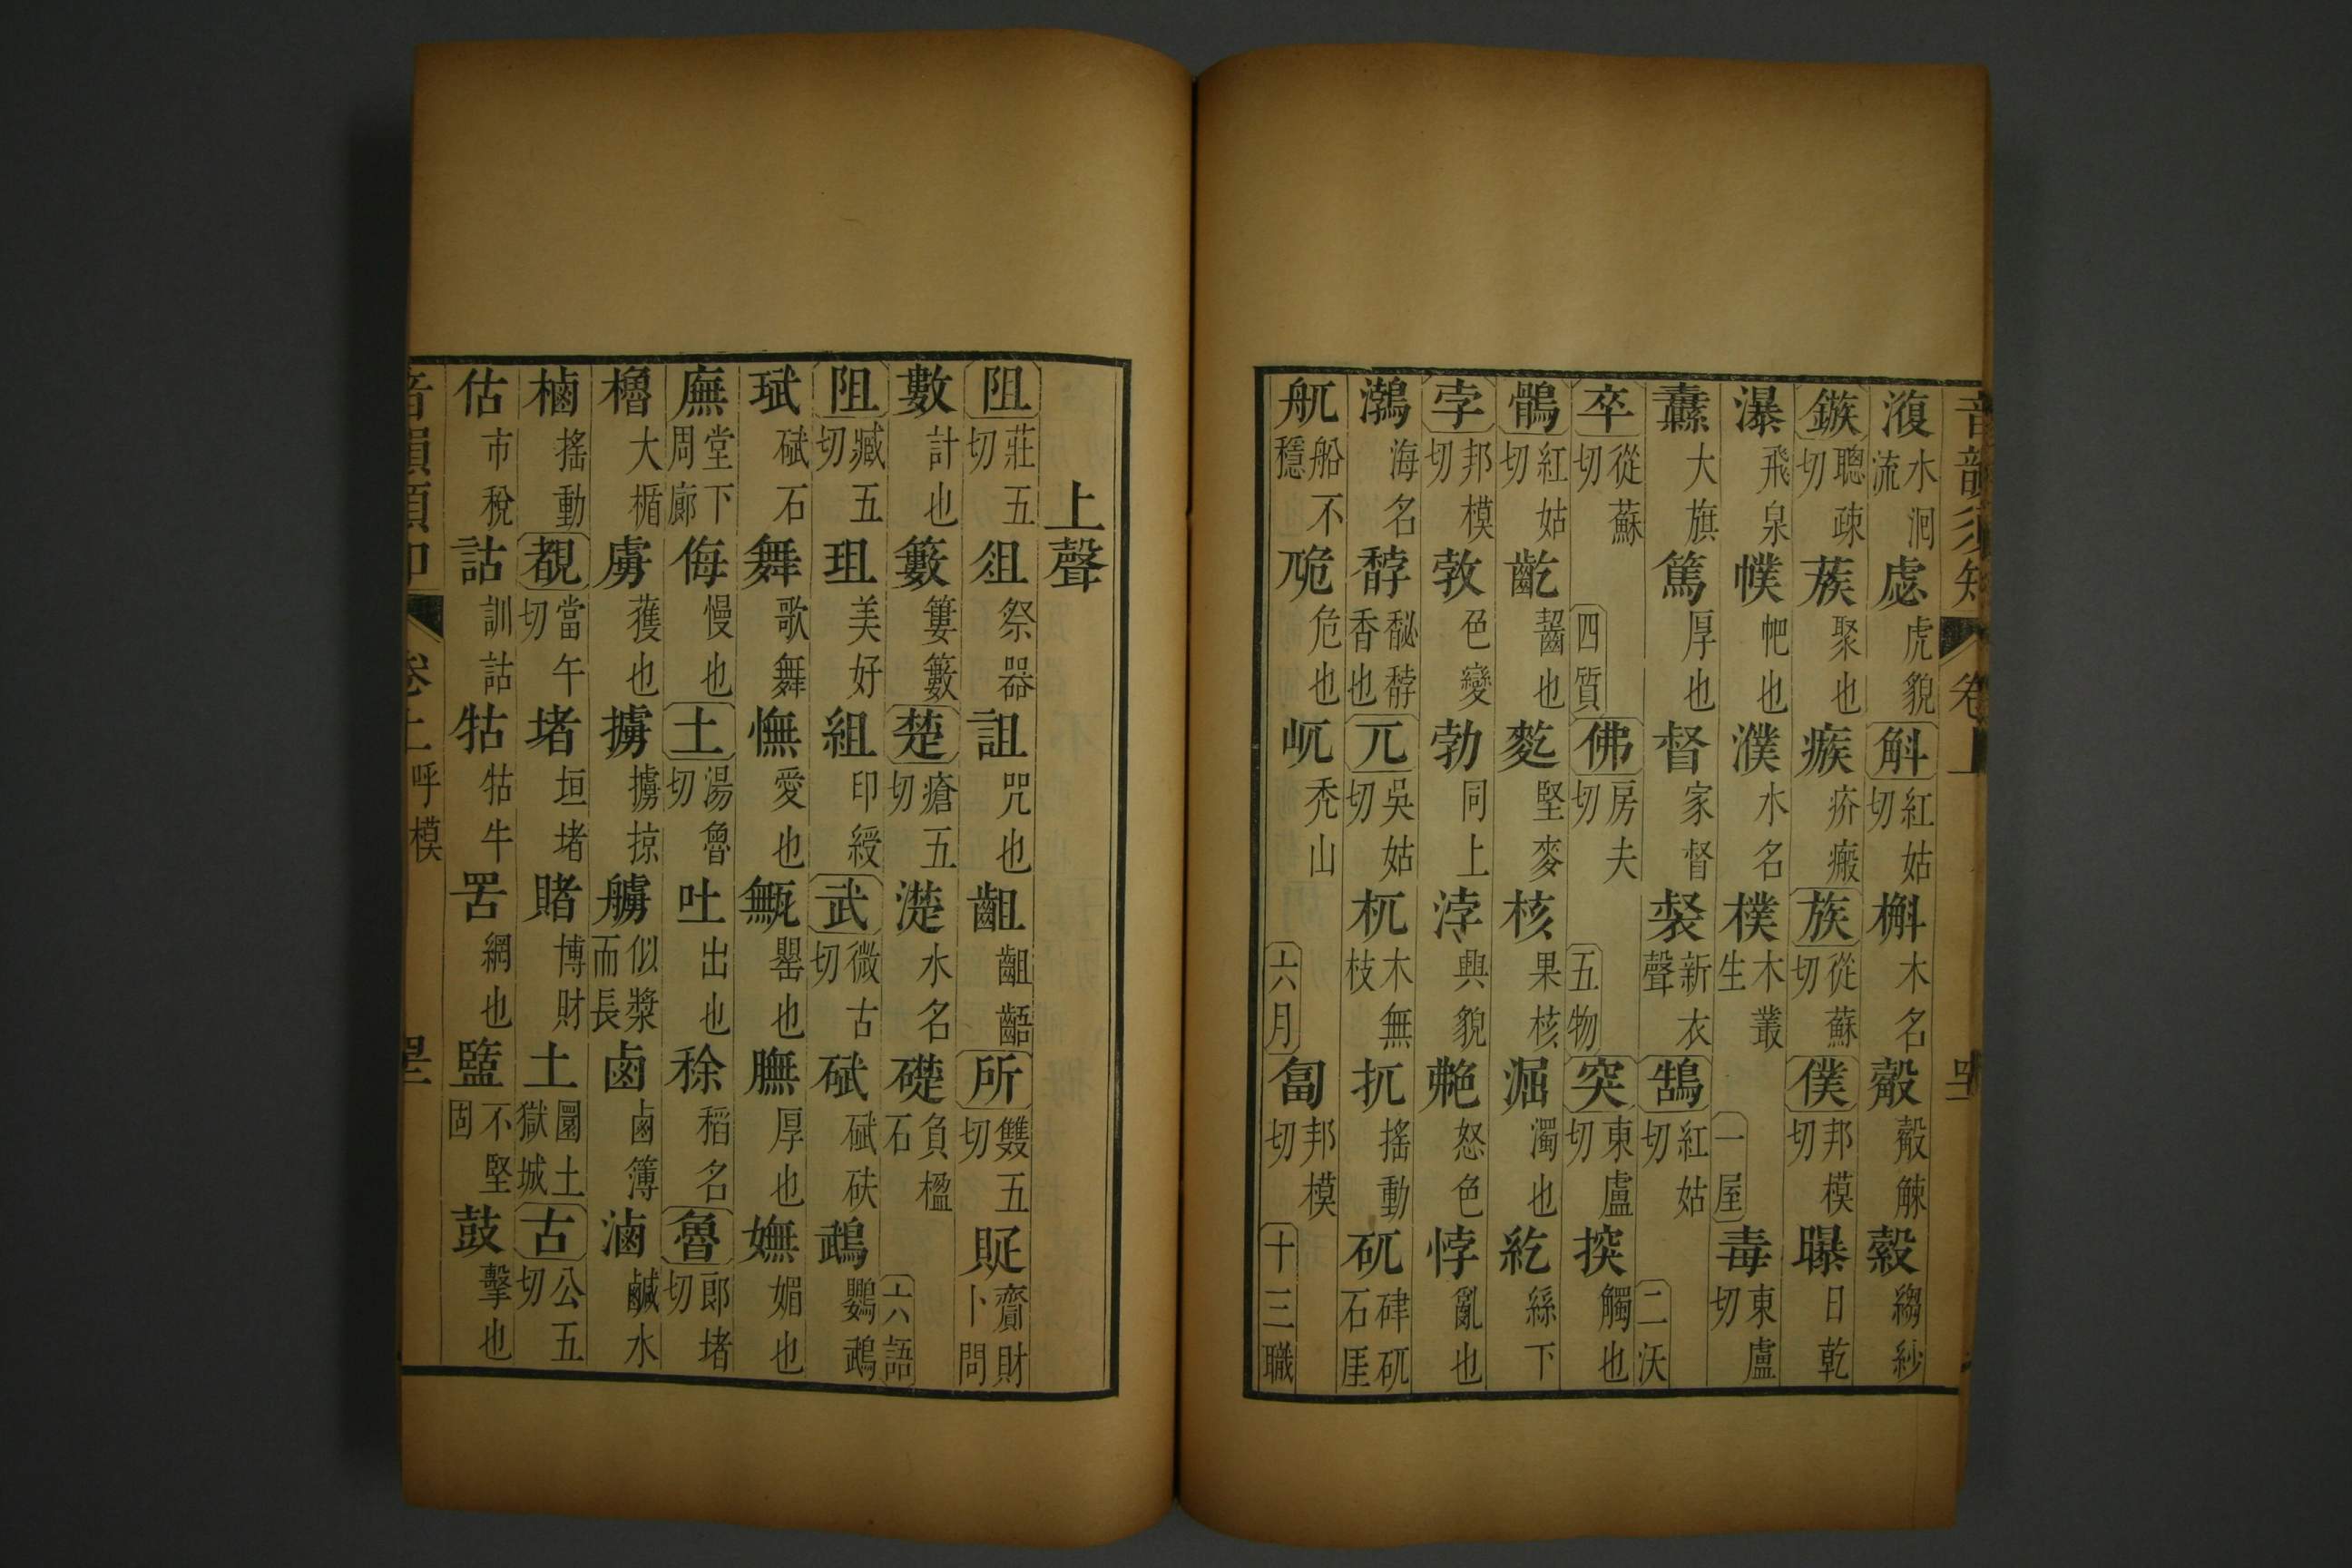 音韻須知 卷上
洑水洄流 虙虎貌 斛紅姑切 槲木名 觳觳觫 縠縐紗
鏃聰疎切 蔟聚也 瘯疥瘢 族從蘇切 僕邦模切 曝日乾
瀑飛泉 幞帊也 濮水名 樸木叢生 一屋 毒東盧切
纛大旗 篤厚也 督家督 裻新衣聲 鵠紅姑切 二沃
卒從蘇切 四質 佛房夫切 五物 突東盧切 揬觸也
鶻紅姑切 齕齧也 麧堅麥 核果核 淈濁也 紇絲下
孛邦模切 㪍色變 勃同上 浡興貌 艴怒色 悖亂也
鵓海名 馞馝馞香也 兀吳姑切 杌木無枝 扤搖動 矹硉矹石厓
舤船不穩 卼危也 屼禿山 六月 匐邦模切 十三職
上聲
阻莊五切 俎祭器 詛咒也 齟齟齬 所雙五切 䝪齎財卜問
數計也 籔簍籔 楚瘡五切 濋水名 礎負楹石 六語
阻臧五切 珇美好 組印綬 武微古切 碔碔砆 鵡鸚鵡
珷碔石 舞歌舞 憮愛也 甒罌也 膴厚也 嫵媚也
廡堂下周廊 侮慢也 土湯魯切 吐出也 稌稻名 魯郎堵切
櫓大楯 虜獲也 擄擄掠 艣似槳而長 鹵鹵簿 滷鹹水
樐搖動 覩當午切 堵垣堵 賭博財 土圜土獄城 古公五切
估市稅 詁訓詁 牯牯牛 罟網也 盬不堅固 鼓擊也
卷上 呼模